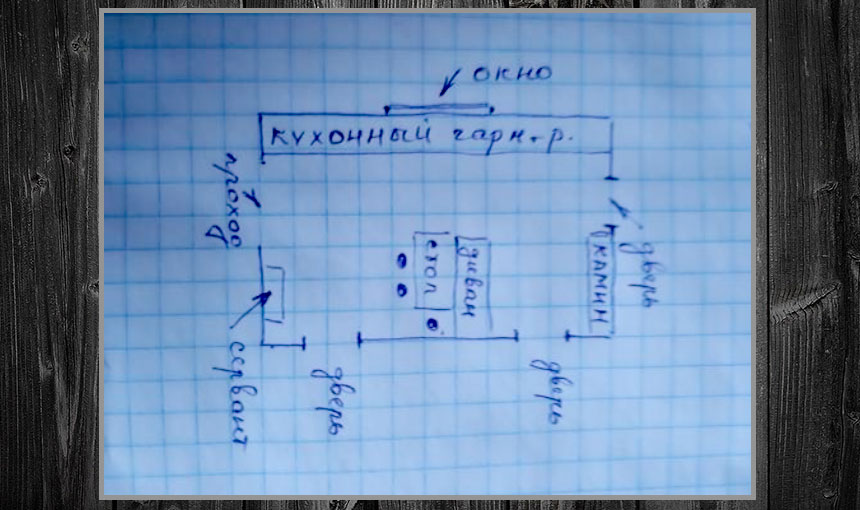 окно
кухонный гарн-р.
проход
дверь
камин
диван
стол
сервант
дверь
дверь